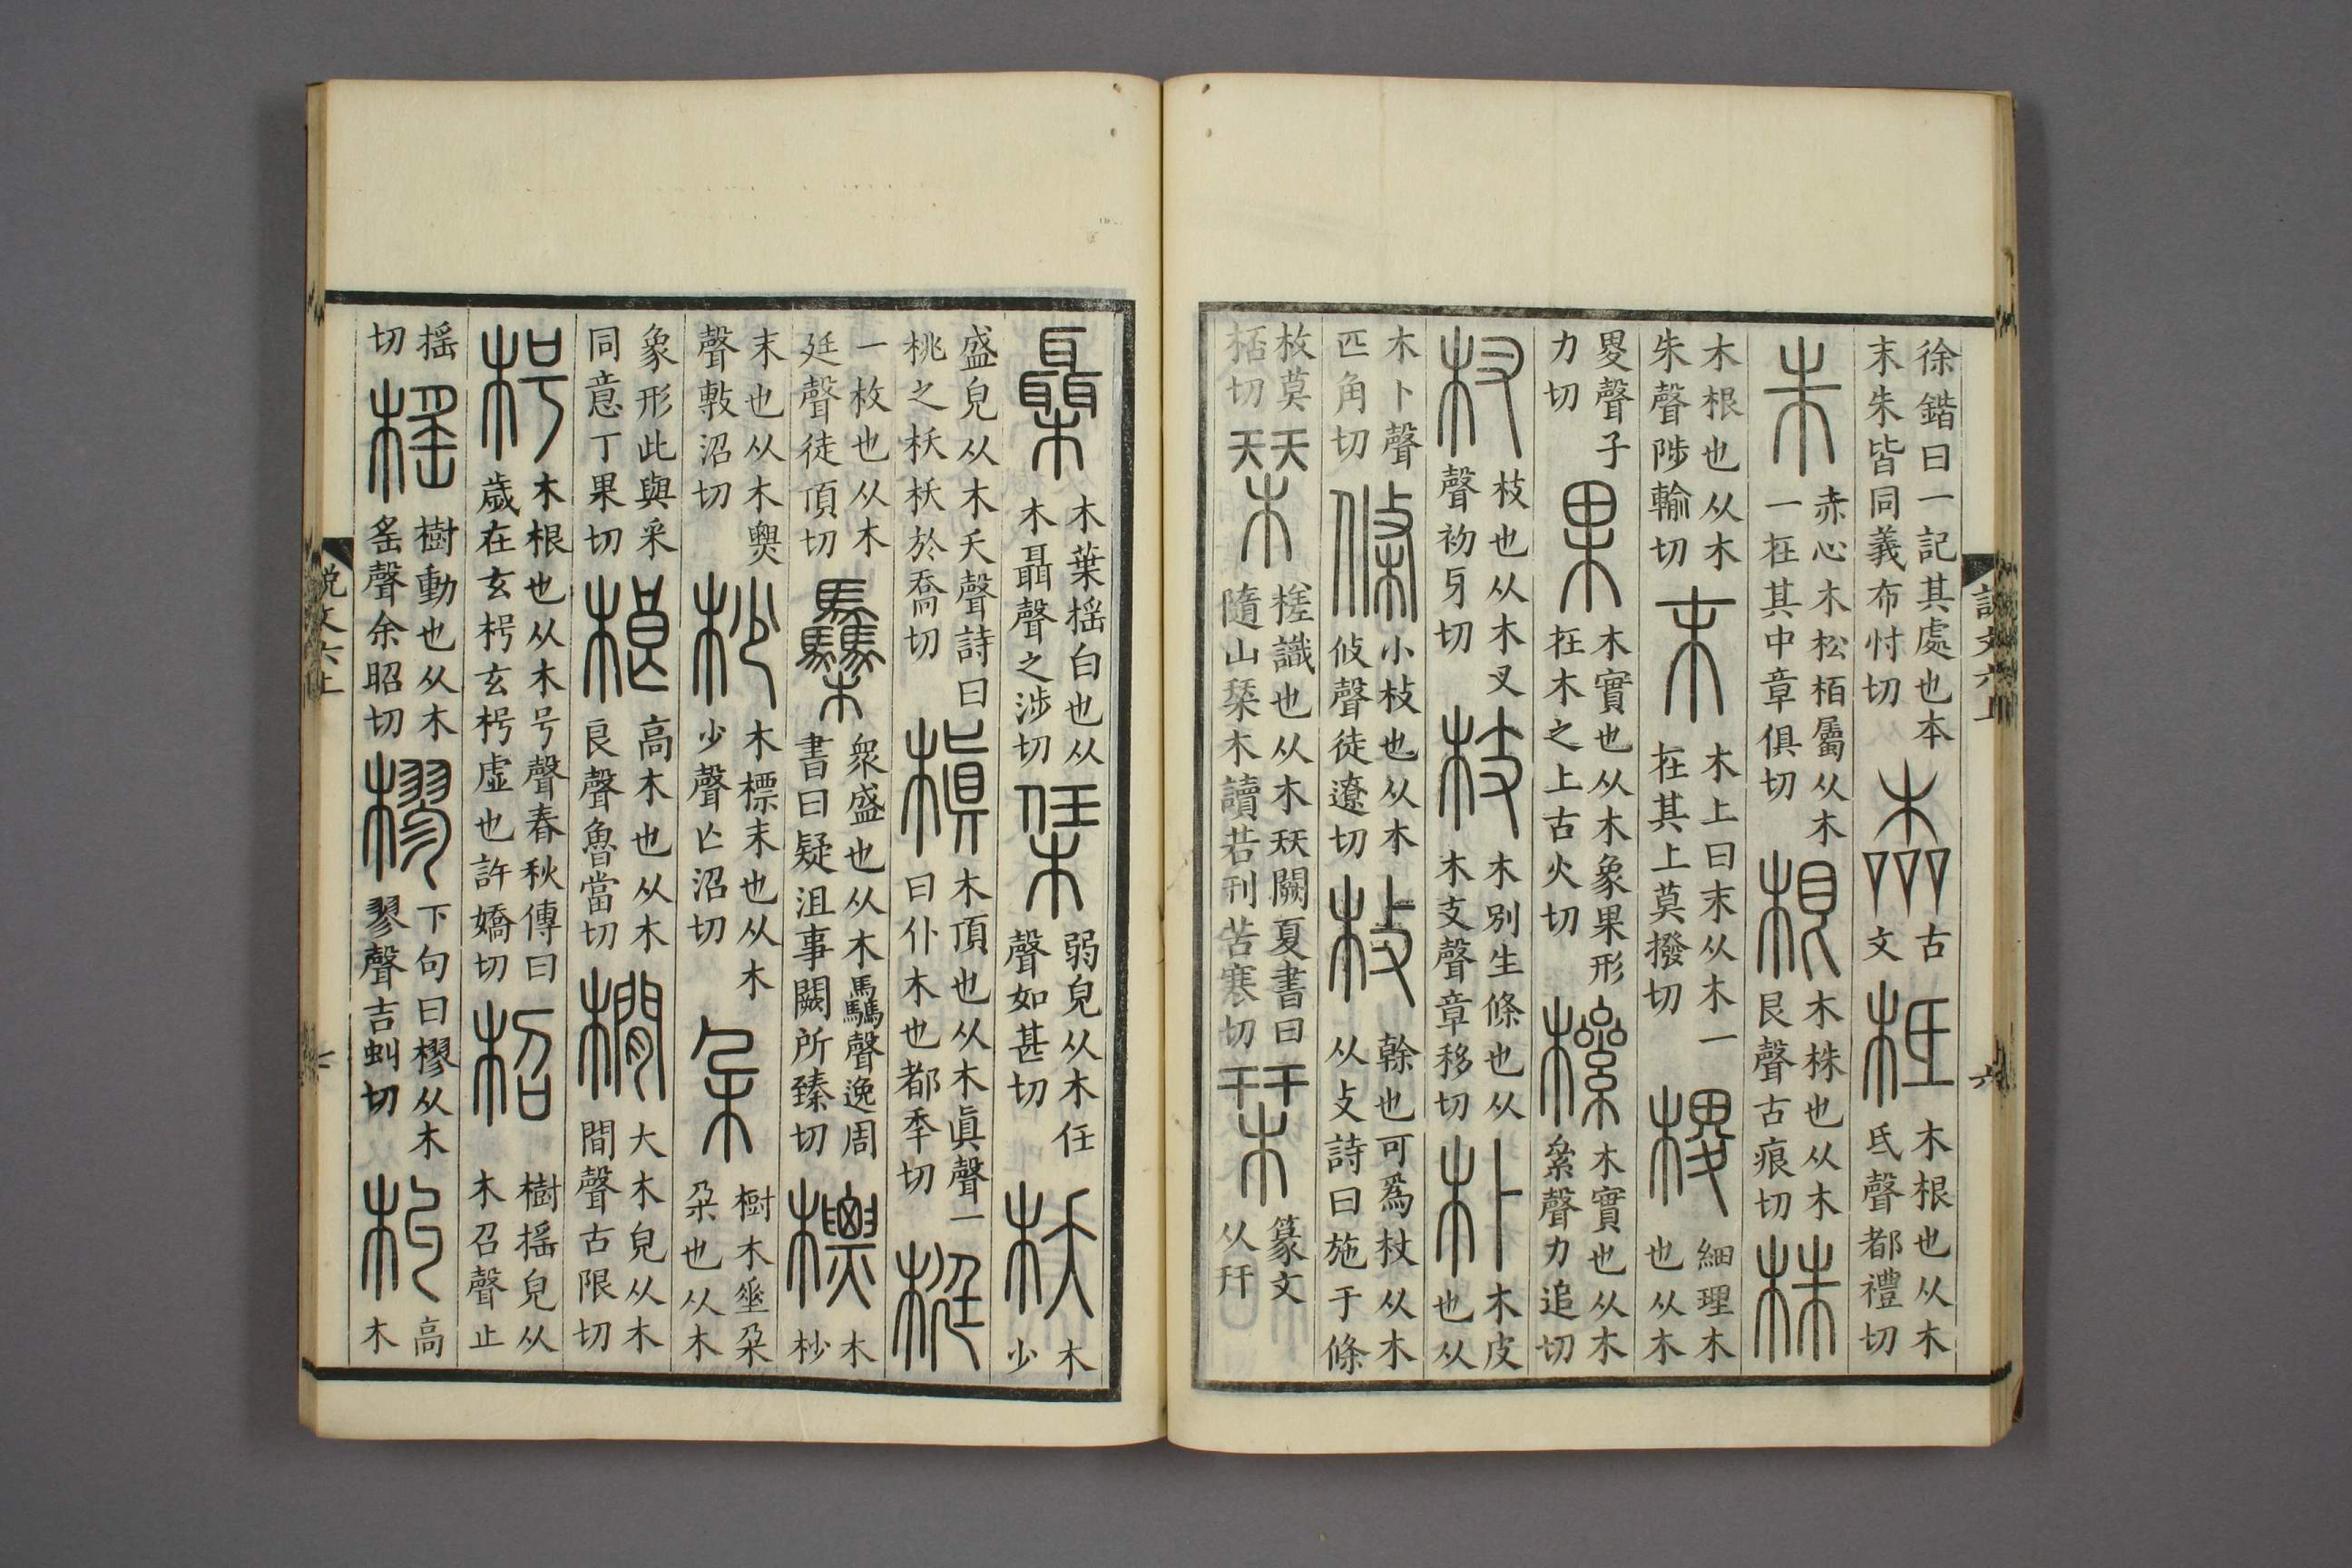 徐鍇曰一記其處也本末朱皆同義布忖切 古文 柢 木根也从木氐聲都禮切
朱 赤心木松栢屬从木一在其中章俱切 根 木株也从木艮聲古痕切 株
木根也从木朱聲陟輸切 末 木上曰末从木一在其上莫撥切 㮨 細理木也从木
畟聲子力切 果 木實也从木象果形在木之上古火切 樏 木實也从木絫聲力追切
杈 枝也从木叉聲初牙切 枝 木別生條也从木支聲章移切 朴 木皮也从
木卜聲匹角切 條 小枝也从木攸聲徒遼切 枚 榦也可爲杖从木从攴詩曰施于條
枚莫桮切 槎識也从木㹜闕夏書曰隨山栞木讀若刊苦寒切 栞 篆文从幵
說文六上 六
木葉榣白也从木聶聲之涉切 弱皃从木任聲如甚切 枖 木少
盛皃从木夭聲詩曰桃之枖枖於喬切 槙 木頂也从木眞聲一曰仆木也都秊切 梃
一枚也从木廷聲徒頂切 衆盛也从木驫聲逸周書曰疑沮事闕所臻切 標 木杪
末也从木㶾聲敷沼切 杪 木標末也从木少聲亡沼切 朶 樹木𠂹朶朶也从木
象形此與采同意丁果切 桹 高木也从木良聲魯當切 橌 大木皃从木閒聲古限切
枵 木根也从木号聲春秋傳曰歲在玄枵玄枵虛也許嬌切 柖 樹榣皃从木召聲止
榣切 榣 樹動也从木䍃聲余昭切 樛 下句曰樛从木翏聲吉虯切 朻 高木
說文六上 七